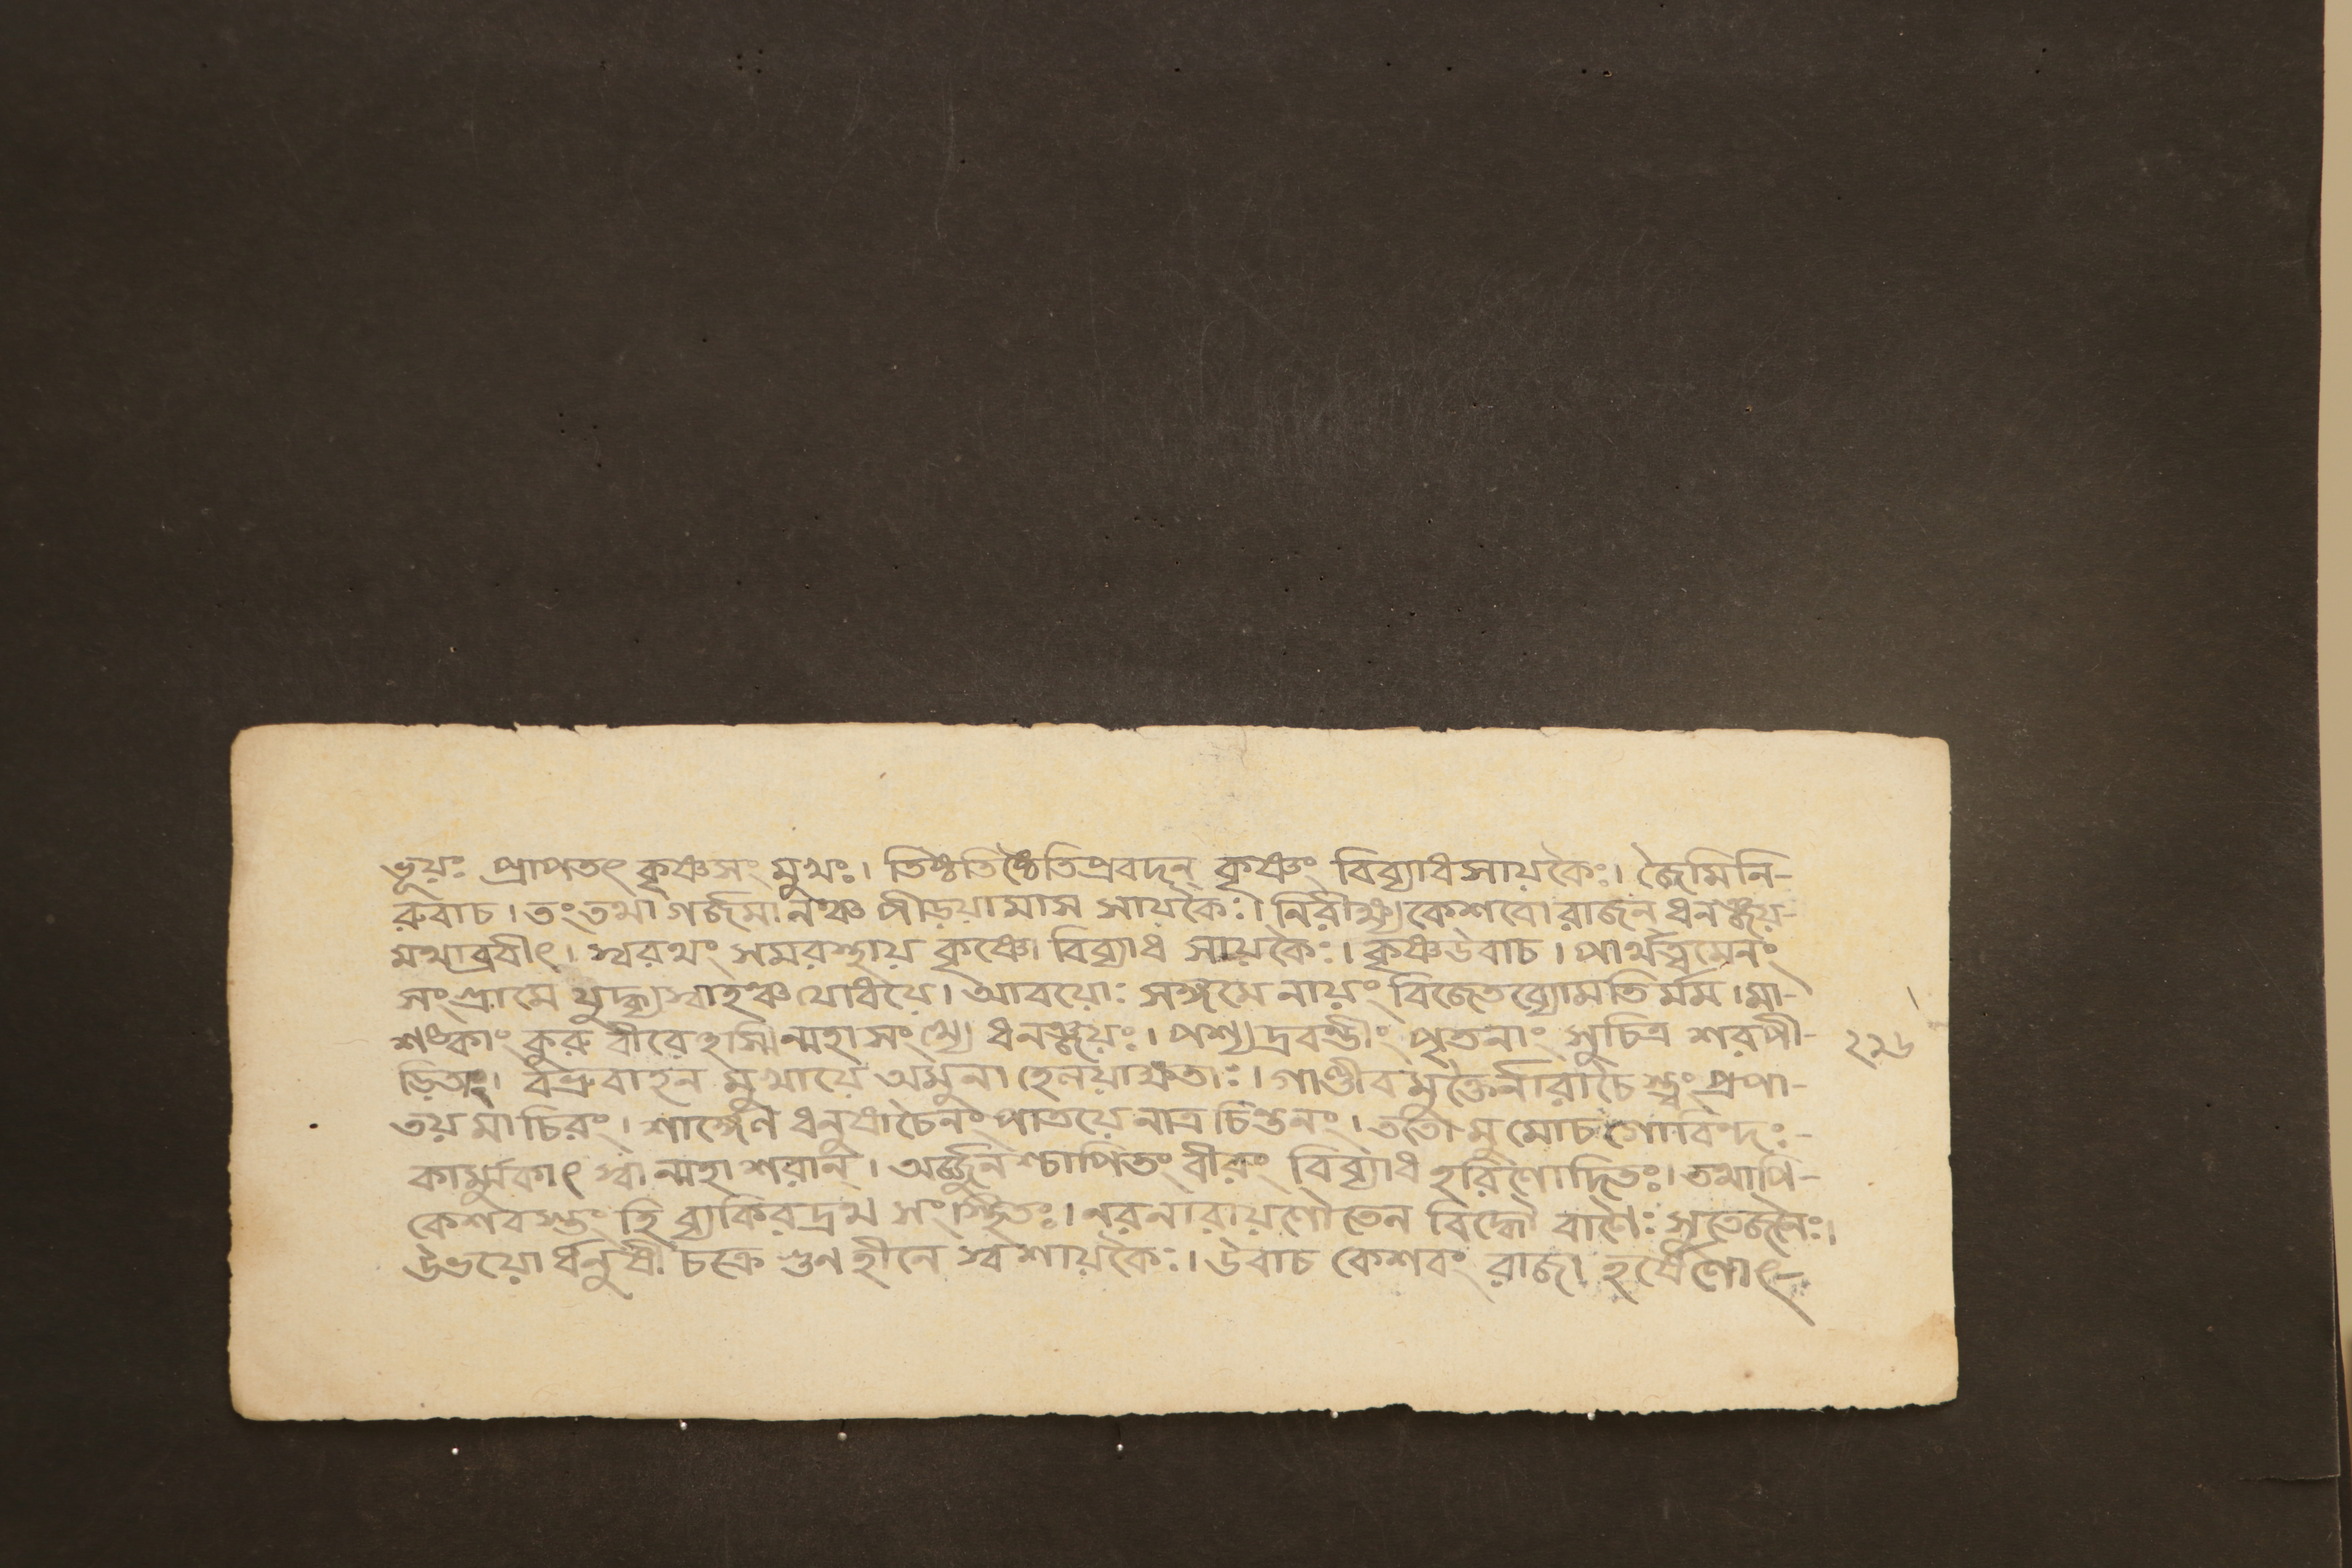 ভূয়ঃ প্রাপতৎ কৃষ্ণসংমুখঃ। তিষ্ঠতিষ্ঠৈতিপ্রবদন্ কৃষ্ণং বিব্যাধসায়কৈঃ। জৈমিনি-
রুবাচ। তংতথা গর্জমানঞ্চ পীড়য়ামাস সায়কৈঃ। নিরীক্ষ্যকেশবো রাজন্ ধনঞ্জয়-
মথাব্রবীৎ। স্বরথং সমরস্থায় কৃষ্ণো বিব্যাধ সায়কৈঃ। কৃষ্ণউবাচ। পার্থত্বমেনং
সংগ্রামে যুদ্ধ্যস্বাহঞ্চ যোধয়ে। আবয়োঃ সঙ্গমে নায়ং বিজেতব্যোমতি র্মম। মা-
শঙ্কাং কুরু বীরেহস্মিন্মহাসংখ্যে ধনঞ্জয়ঃ। পশ্য দ্রবন্তীং পৃতনাং সুচিত্র শরপী- ২২৬
ড়িতাং। বভ্রুবাহন মুখায়ে অমুনা হেলয়াক্ষতাঃ। গাণ্ডীব মুক্তৈর্নারাচৈ স্ত্বং প্রপা-
তয় মা চিরং। শার্ঙ্গেণ ধনুষাচৈনং পাতয়ে নাত্র চিন্তনং। ততো মুমোচ গোবিন্দঃ-
কার্ম্মুকাৎ স্বান্মহাশরান্। অর্জ্জুনশ্চাপিতং বীরং বিব্যাধ হরিণোদিতঃ। তথাপি-
কেশবস্তং হি ব্যাকিরদ্রথ সংস্থিতঃ। নরনারায়ণৌ তেন বিদ্ধৌ বাণৈঃ সুতেজনৈঃ।
উভয়ো র্ধনুষী চক্রে গুণ হীনে স্বশায়কৈঃ। উবাচ কেশবং রাজা হর্ষেণোৎ-